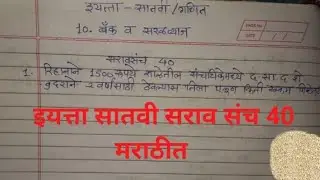 इयत्ता - सातवी / गणित
10. बँक व सरळव्याज
सरावसंच 40
1. रिहानने 1500 रुपये शाळेतील संचयिकेमध्ये द.सा.द.शे.
दराने 2 वर्षांसाठी ठेवल्यास त्याला एकूण किती रक्कम मिळेल
इयत्ता सातवी सराव संच 40
मराठीत